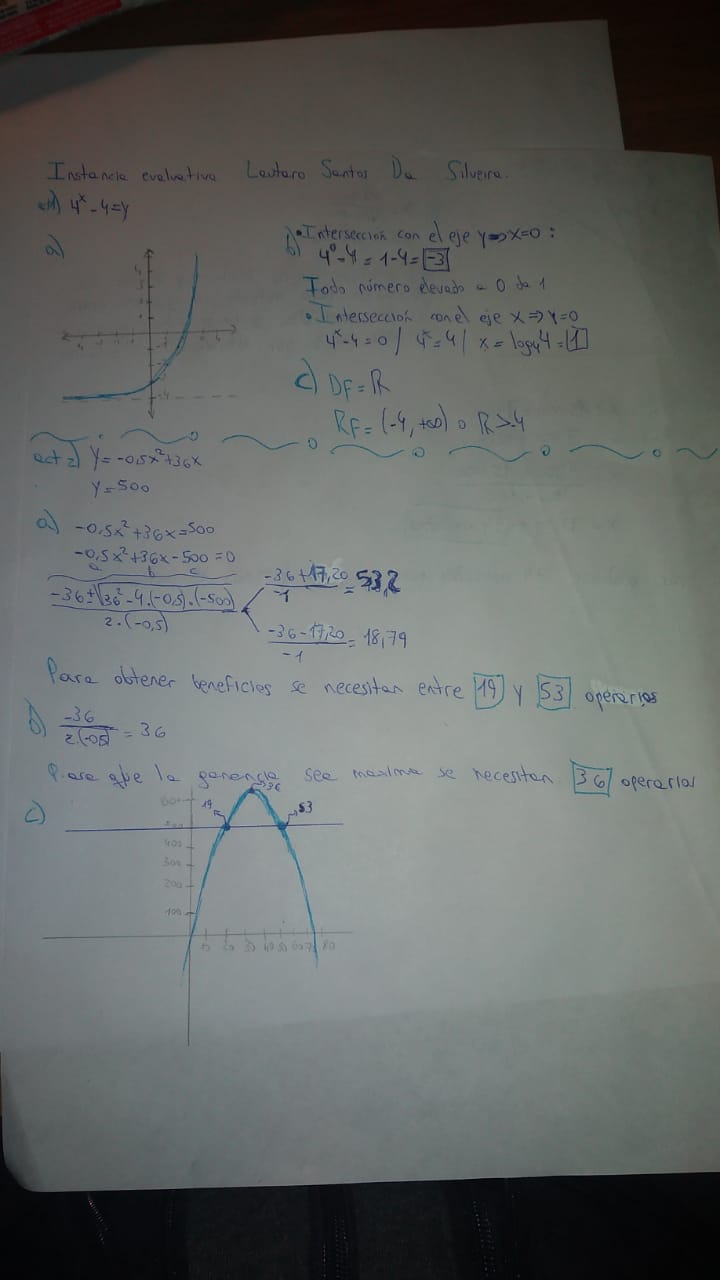 Instancia evaluativa Lautaro Santos Da Silveira.
4ˣ-4=y
a)
-4
b) • Intersección con el eje y => x=0:
4⁰-4 = 1-4 = -3
Todo número elevado a 0 da 1
• Intersección con el eje x => y=0
4ˣ-4=0 / 4ˣ=4 / x = log₄4 = 1
c) DF = R
RF = (-4, +∞) o R>-4
act 2) y = -0,5x²+36x
y = 500
a) -0,5x²+36x=500
-0,5x²+36x-500=0
a b c
-36±√36²-4.(-0,5).(-500)
2.(-0,5)
-36+17,20 = 53,2
-1
-36-17,20 = 18,79
-1
Para obtener beneficios se necesitan entre 19 y 53 operarios
b) -36 = 36
2.(-0,5)
Para que la ganancia sea maxima se necesitan 36 operarios
c)
600 19 36 53
500
400
300
200
100
10 20 30 40 50 60 70 80